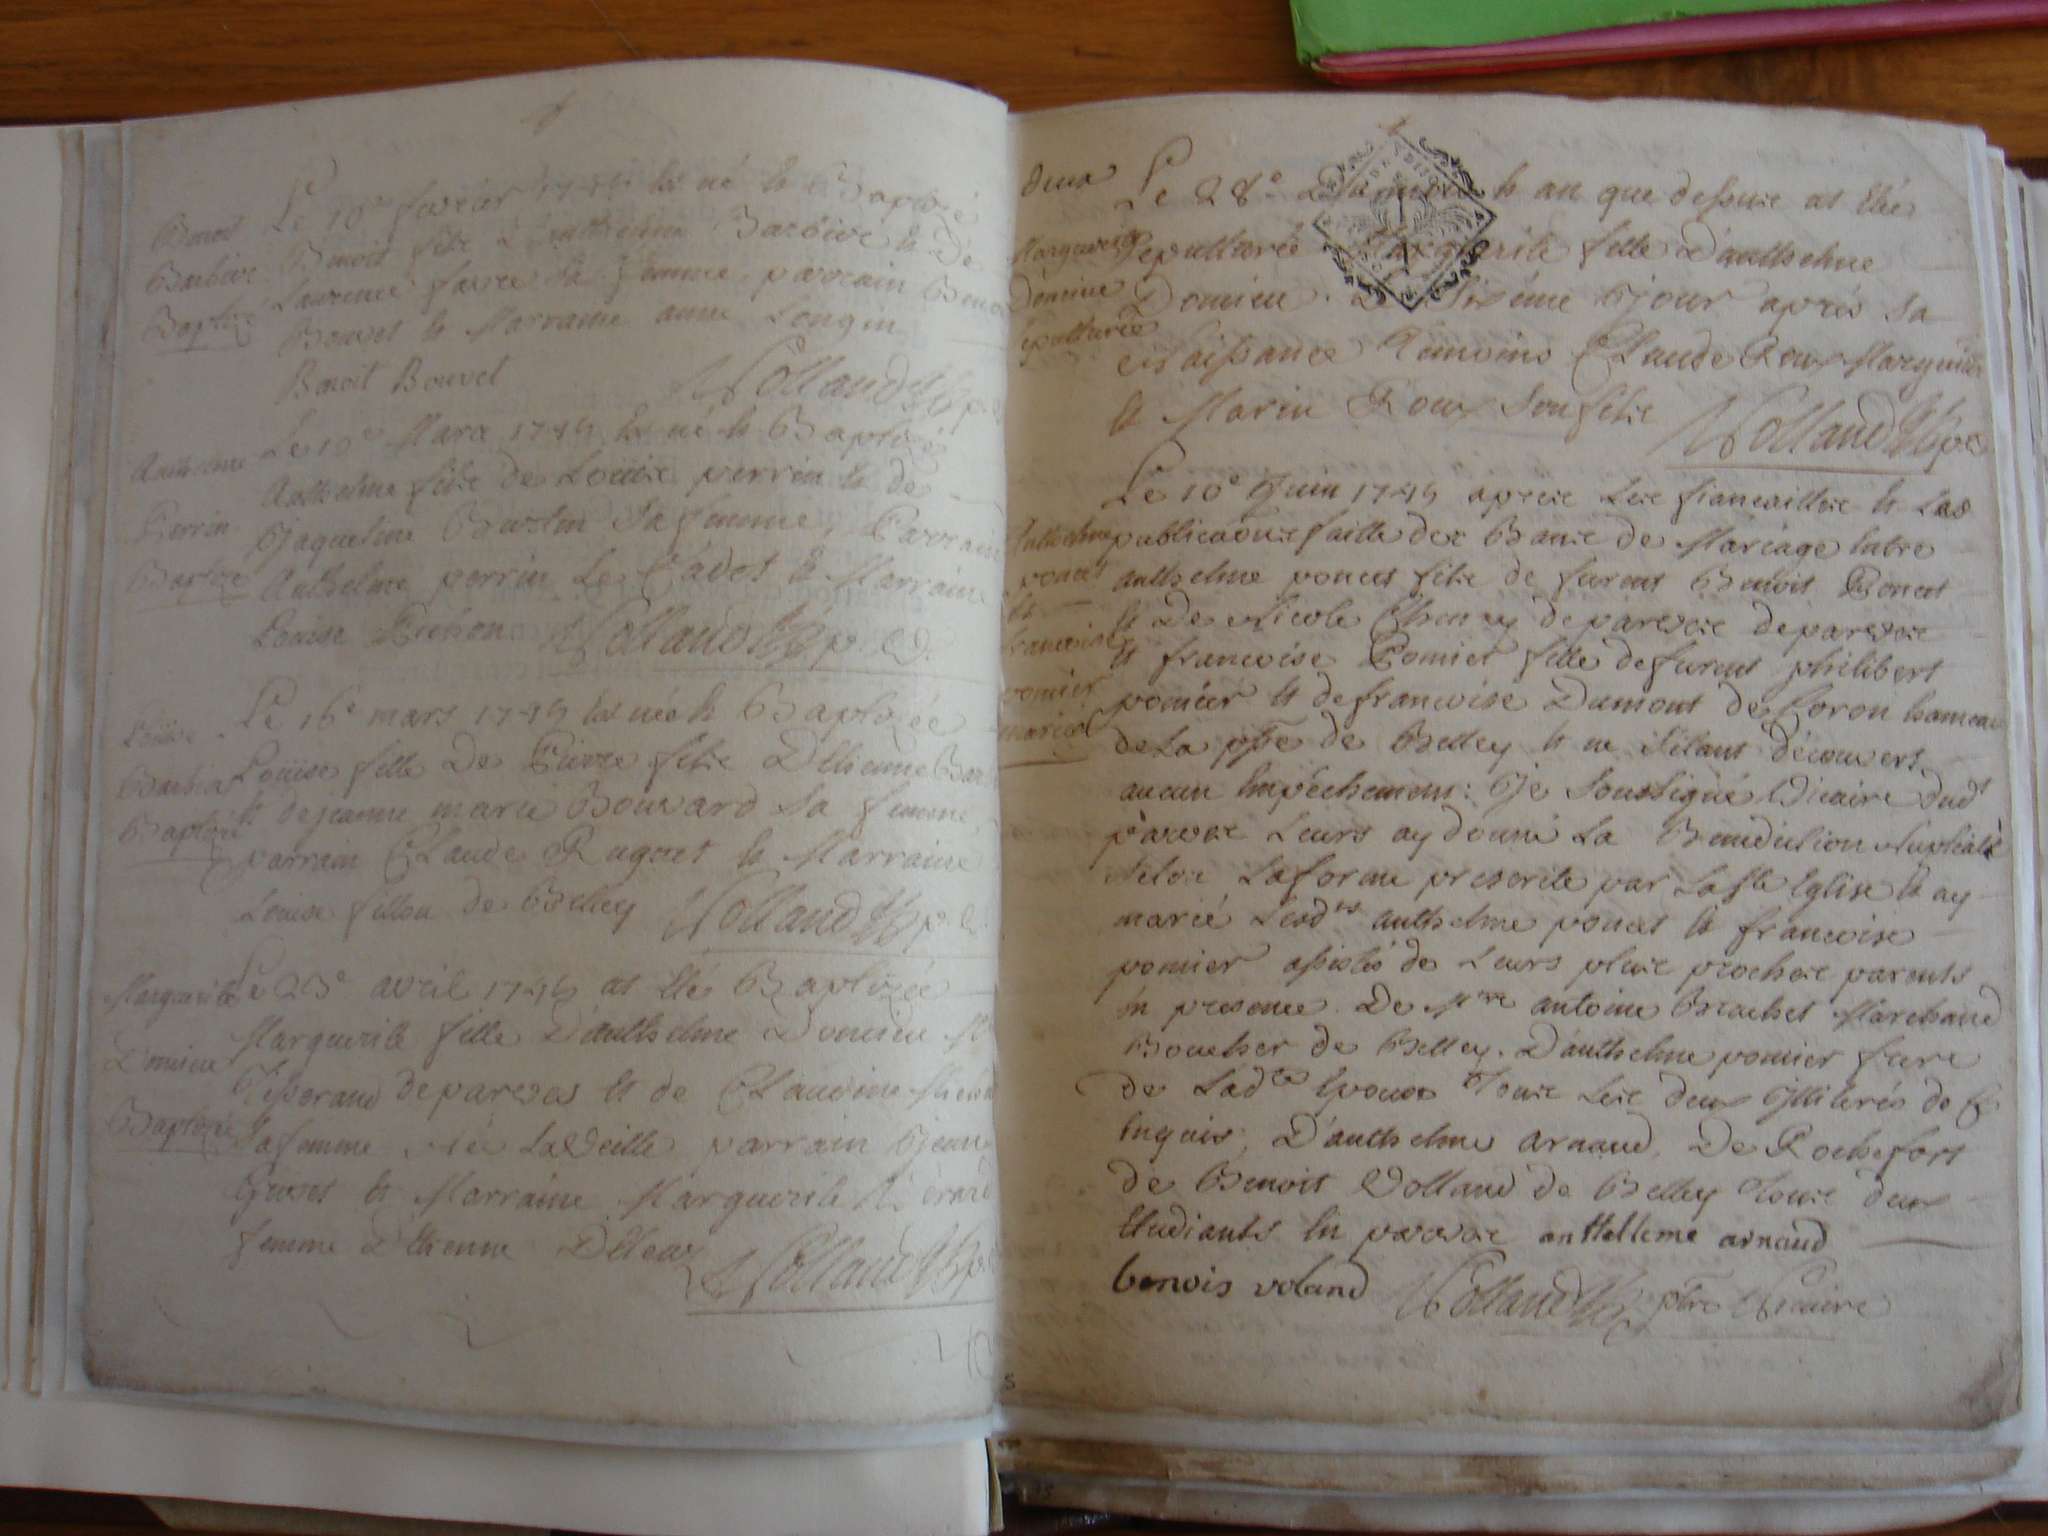 Benoit
Barbier
Baptizé
Le 10e fevrier 1745 est né et Baptizé
Benoit fils d'anthelme Barbier et De
Laurence favre sa femme, parrain Benoit
Bouvet et Marraine anne Longin
Benoit Bouvet Vollaud
Anthelme
Perrin
Baptize
Le 10e Mars 1745 est né et Baptizé
Anthelme fils de Louis perrin et de
Jaqueline sa femme, Parrain
Anthelme perrin Le Cadet et Marraine
Louise Vollaud p
Louise
Baptizée
Le 16e mars 1745 est née et Baptizée
Louise fille De Pierre fils D'Etienne
et de jeanne marie Bouvard sa femme,
parrain Claude et Marraine
Louise fillou de Belley Vollaud p
Marguerite
Domieu
Baptizée
Le 23e avril 1745 at Eté Baptizée
Marguerite fille D'anthelme Domieu
Tisserand de parves et de Claudine
sa femme née La Veille parrain Jean
et Marraine Marguerite
femme D'Etienne Vollaud p
deux
Marguerite
Domieu
épulturée
Le 28e Du mois et an que dessus at Eté
sepulturée Marguerite fille D'anthelme
Domieu. Le Sixéme Jour aprés sa
naissance Temoins Claude Roux Marguillier
et Marin Roux Son fils Vollaud p
Anthelme
poncet
et
francoise
pomier
mariés
Le 10e Juin 1745 aprés Les fiancailles et Las
publications faitte des Bans de Mariage Entre
anthelme poncet fils de furent Benoit Poncet
et De Nicole de parves
et francoise Pomier fille de furent philibert
pomier et de francoise Dumont de Coron hameau
de La psse de Belley et ne s'étant découvert
aucun Empéchement: Je Soussigné Vicaire dudt
parves Leurs ay donné La Benediction Nuptiale
selon La forme prescrite par La ste Eglise Et ay
marié Lesdts anthelme poncet et francoise
pomier assistés de Leurs plus proches parents
En presence De Mre antoine Brachet Marchand
Boucher de Belley. D'anthelme pomier frere
de Ladte Epouse Tous Les deux Illiterés de ce
Enquis, D'anthelme arnaud, De Rochefort
de Benoit Vollaud de Belley Tous deux
Etudiants En parves anthelleme arnaud
benois voland Vollaud ptre Vicaire